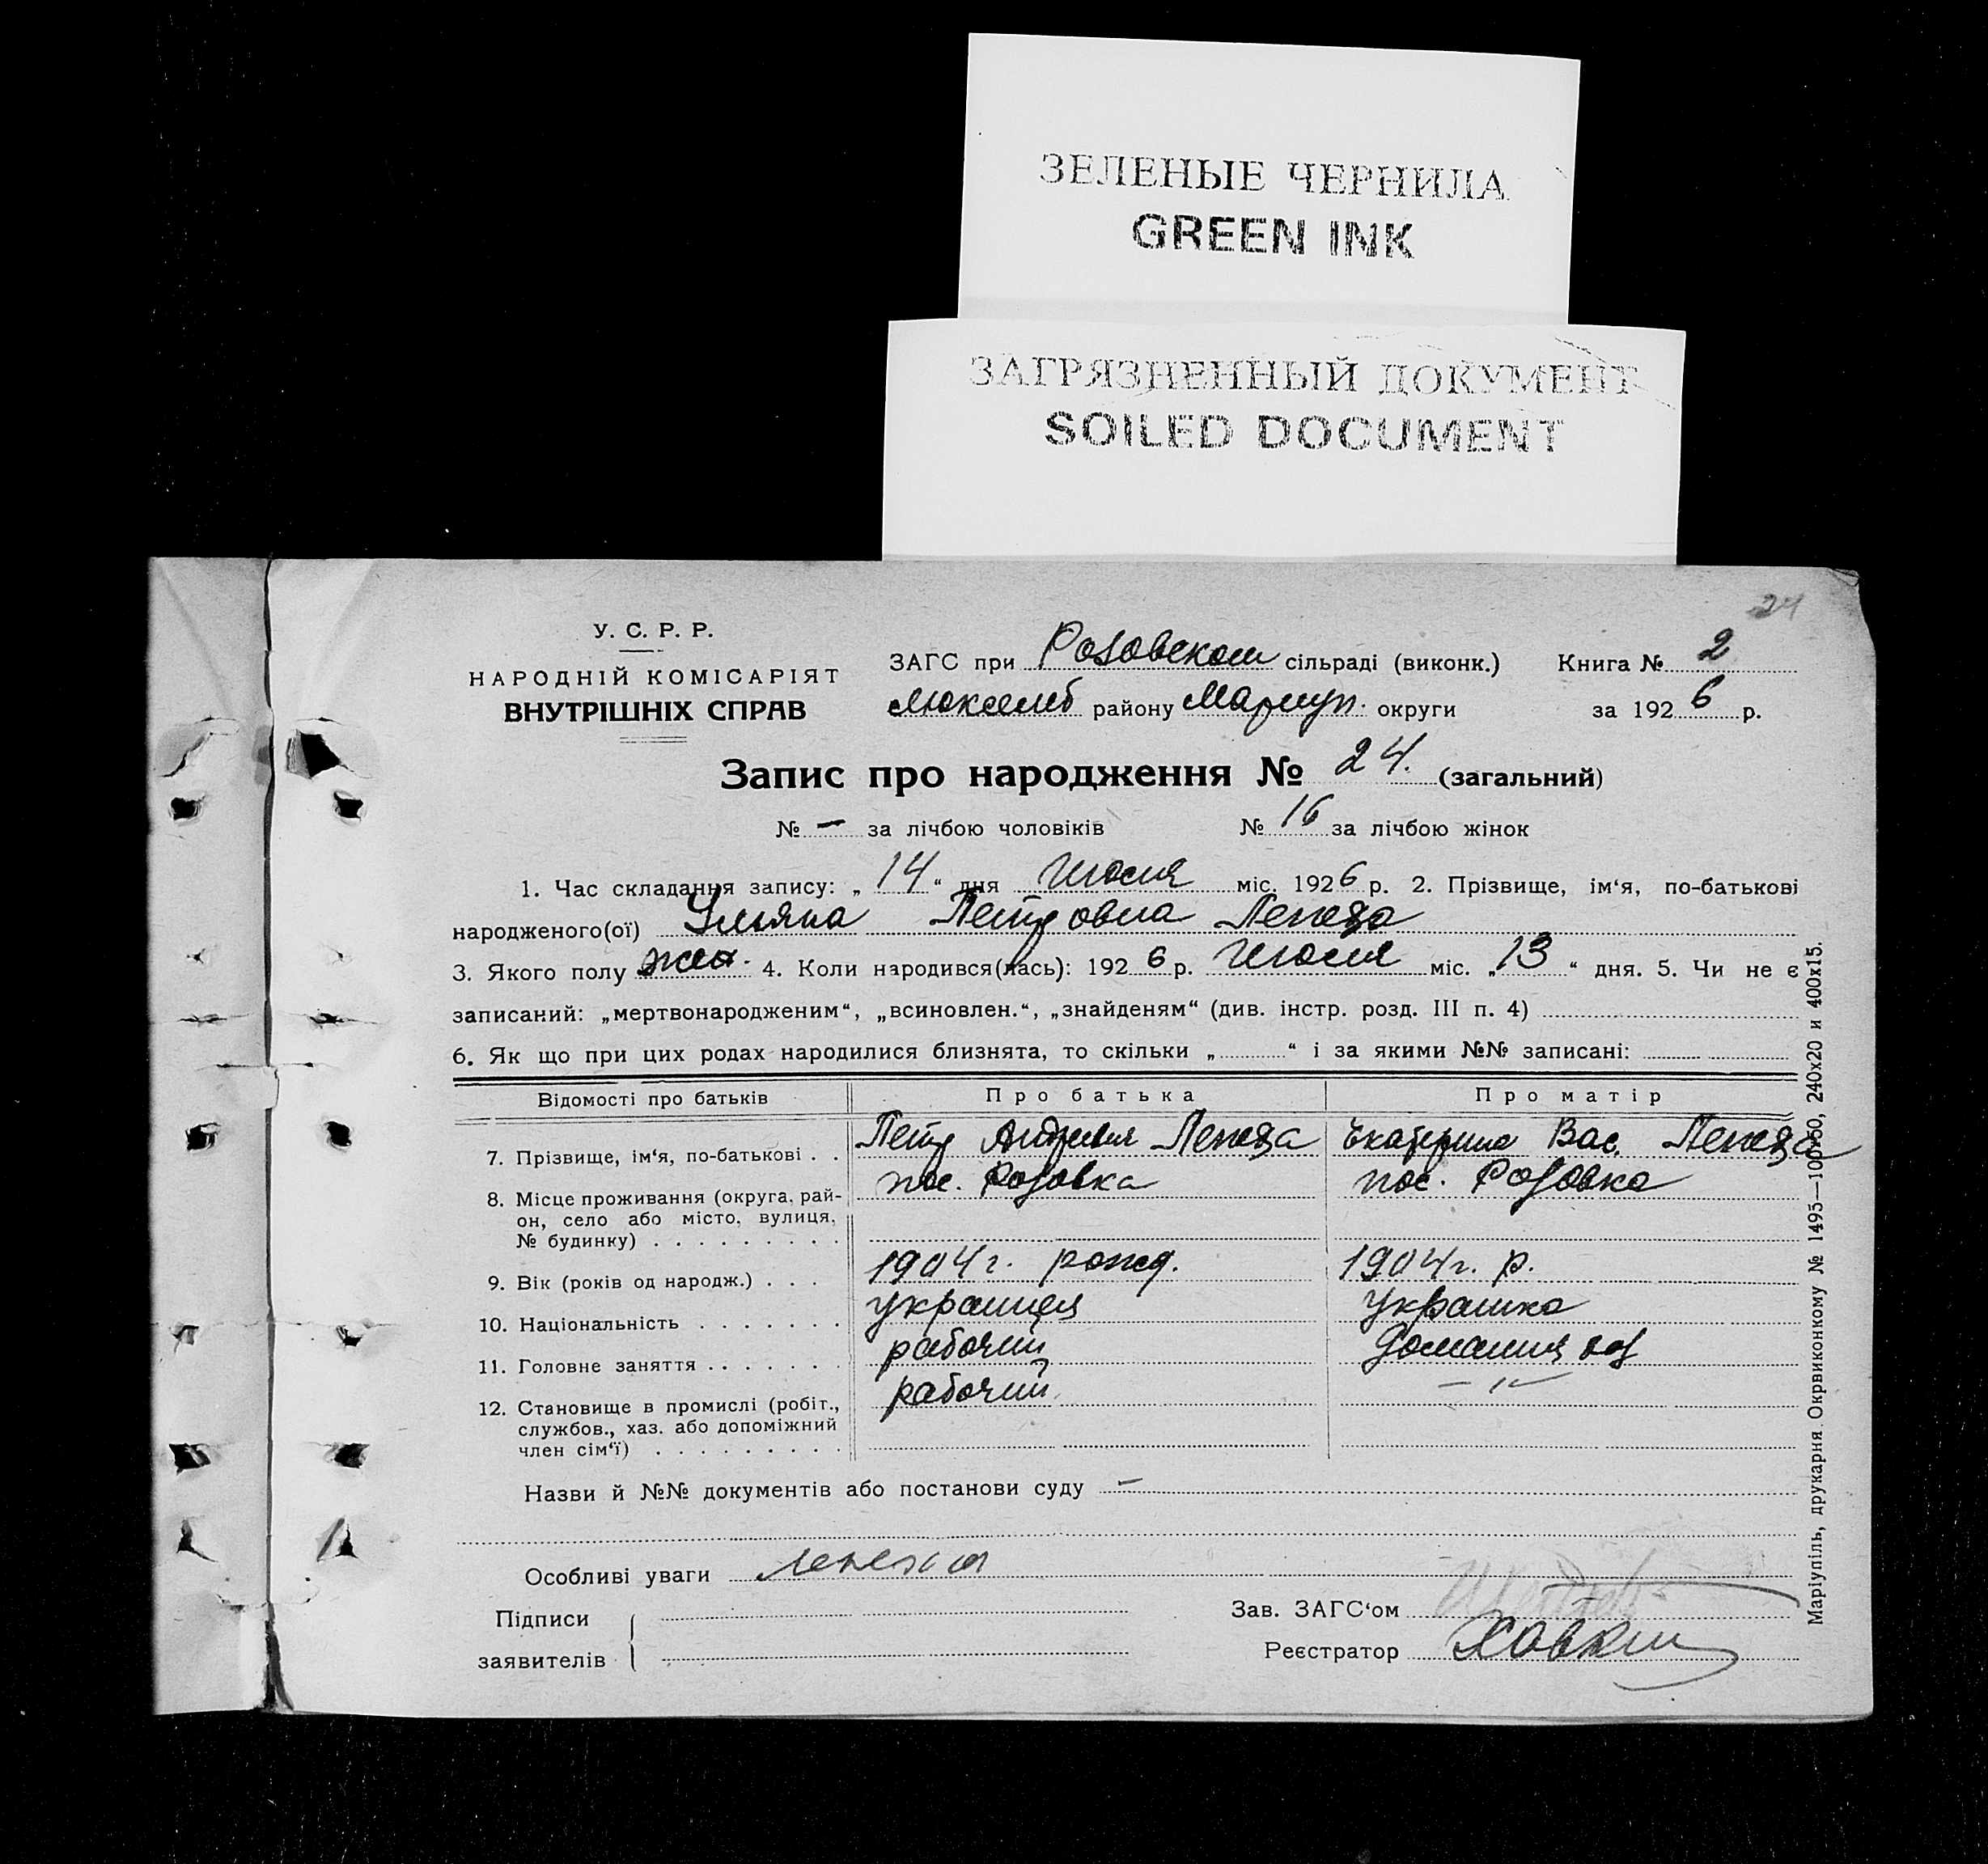 ЗЕЛЕНЫЕ ЧЕРНИЛА
GREEN INK
ЗАГРЯЗНЕННЫЙ ДОКУМЕНТ
SOILED DOCUMENT
24
У. С. Р. Р.
НАРОДНІЙ КОМІСАРІЯТ
ВНУТРІШНІХ СПРАВ
ЗАГС при Розовском сільраді (виконк.) Книга № 2
району Мариуп. округи за 1926 р.
Запис про народження № 24. (загальний)
№ – за лічбою чоловіків № 16 за лічбою жінок
1. Час складання запису: „14“ дня Июля міс. 1926 р. 2. Прізвище, ім‘я, по-батькові
народженого(ої) Ульяна Петровна
3. Якого полу жен. 4. Коли народився(лась): 1926 р. Июля міс. „13“ дня. 5. Чи не є
записаний: „мертвонародженим“, „всиновлен.“, „знайденям“ (див. інстр. розд. III п. 4)
6. Як що при цих родах народилися близнята, то скільки „ “ і за якими №№ записані:
Відомості про батьків Про батька Про матір
7. Прізвище, ім‘я, по-батькові . . Петр Екатерина Вас.
8. Місце проживання (округа, рай- пос. Розовка пос. Розовка
он, село або місто, вулиця,
№ будинку) . . . . . . . . .
9. Вік (років од народж.) . . . 1904 г. рожд. 1904 г. р.
10. Національність . . . . . . . украинец украинка
11. Головне заняття . . . . . . . рабочий домашня хоз
12. Становище в промислі (робіт., рабочий – " –
службов., хаз. або допоміжний
член сім‘ї) . . . . . . . . .
Назви й №№ документів або постанови суду –
Особливі уваги
Підписи
заявителів
Зав. ЗАГС‘ом
Реєстратор
Маріупіль, друкарня Окрвиконкому № 1495—100х50, 240х20 и 400х15.